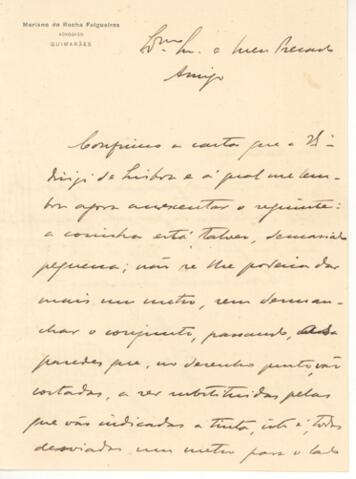 Mariano da Rocha Felgueiras
ADVOGADO
GUIMARÃES
Exmo. Sr. e meu Prezado
Amigo
Confirmo a carta que a V.
dirigi de Lisboa e á qual me lem-
bra agora acrescentar o seguinte:
a cosinha está, talvez, demasiado
pequena; não se lhe poderia dar
mais um metro, sem desman-
char o conjunto, passando, as
paredes que, no desenho junto, vão
cortadas, a ser substituidas pelas
que vão indicadas a tinta, isto é, todas
desviadas um metro para o lado